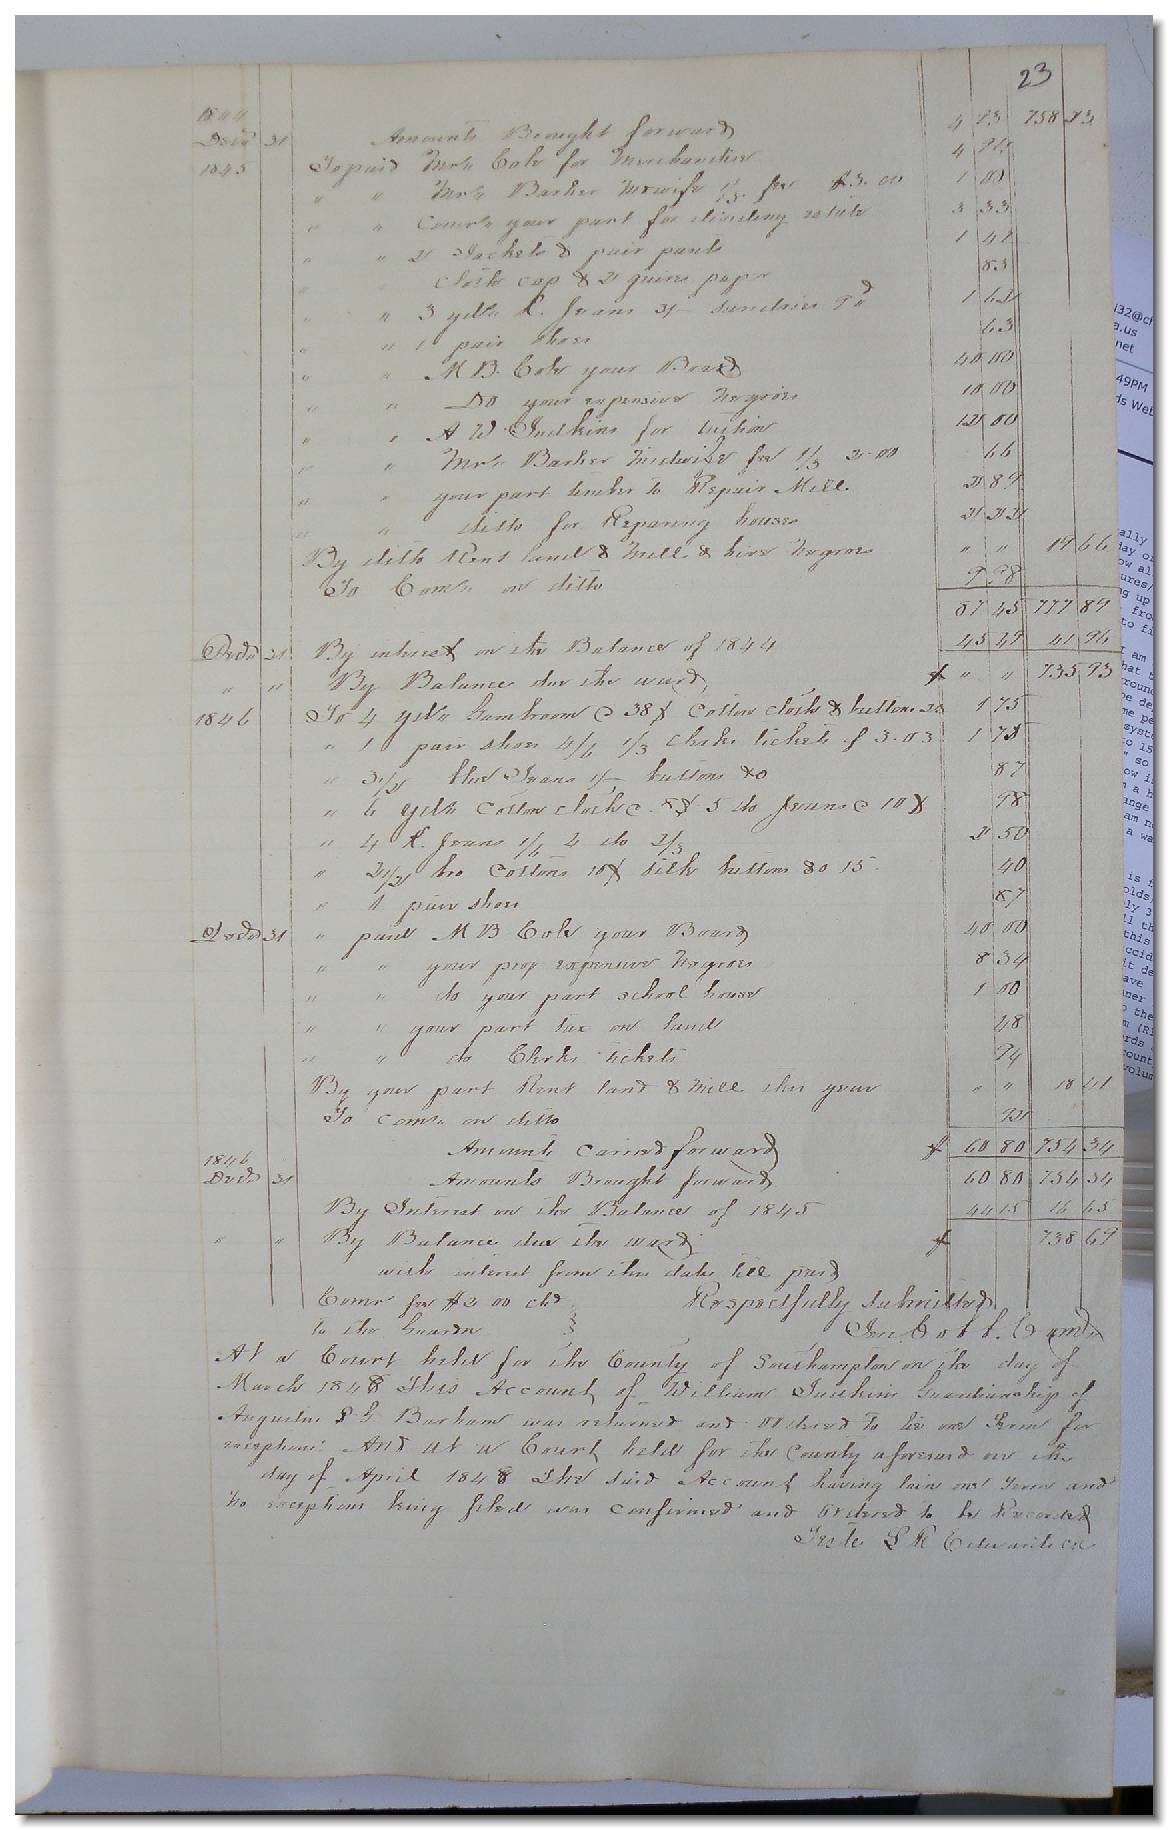 23
1844
Decr 31 Amounts Brought forward 4 93 758 23
1845 To paid Mrs Cole for Merchandise 4
" " Mrs Barker Midwife 1/3 fee $3.00 1 00
" " Comrs your part for dividing estate 3 33
" " 2 Jackets & pair pants 1 42
" " Cloth cap & 2 quires paper 83
" " 3 yds K. Jeans 3/– Sundries 9d 1 62
" " 1 pair shoes 63
" " M B. Cole your Board 40 00
" " Do your expensive Negroes 10 00
" " A W Judkins for tuition 12 00
" " Mrs Barker Midwife fee 1/3 2.00 66
" " your part timber to Repair Mill 2 89
" " ditto for Reparing houses 2 22
By ditto Rent land & Mill & hire Negroes " " 19 66
To Coms on ditto 98
87 45 777 89
Decr 31 By interest on the Balance of 1844 45 49 41 96
" " By Balance due the ward $ " " 735 93
1846 To 4 yds Gambroom @ 38¢ Cotton cloth & buttons 1 75
" 1 pair shoes 4/6 1/3 clerks tickets of 3.03 1 75
" 3 1/2 blue Jeans 1/– buttons &c 87
" 6 yds Cotton cloth @ 8¢ 5 do Jeans @ 10¢ 98
" 4 K. Jeans 1/6 4 do 2/3 2 50
" 2 1/2 bro Cottons 10¢ silk buttons &c 15. 40
" 1 pair shoes 87
Decr 31 " paid M B Cole your Board 40 00
" " your prop expensive Negroes 8 34
" " do your part school house 1 00
" " your part tax on lands 48
" " do Clerks tickets 94
By your part Rent land & Mill this year " " 18 41
To Coms on ditto 92
Amounts carried forward $ 60 80 754 34
1846
Decr 31 Amounts Brought forward 60 80 754 34
By Interest on the Balance of 1845 44 15 16 65
" " By Balance due the ward $ 738 69
with interest from this date till paid
Comr fee $2 00 chd } Respectfully submitted
to the Guardn }
At a Court held for the County of Southampton on the day of
March 1848 This Account of William Judkins Guardianship of
Augustus S. G. Barham was returned and ordered to lie one Term for
exceptions And at a Court held for the County aforesaid on the
day of April 1848 The said Account having lain one Term and
no exceptions being filed was confirmed and ordered to be Recorded
Teste L R Edwards CC